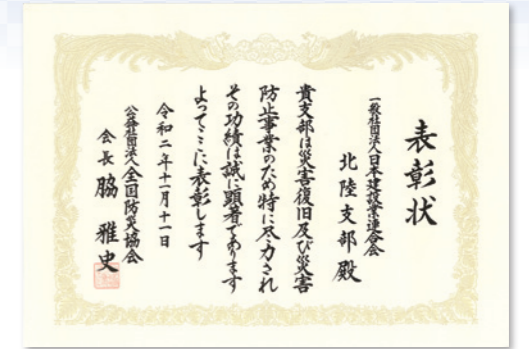 表彰状
一般社団法人日本建設業連合会
北陸支部殿
貴支部は災害復旧及び災害
防止事業のため特に尽力され
その功績は誠に顕著であります
よってここに表彰します
令和二年十一月十一日
公益社団法人全国防災協会
会長 脇 雅史